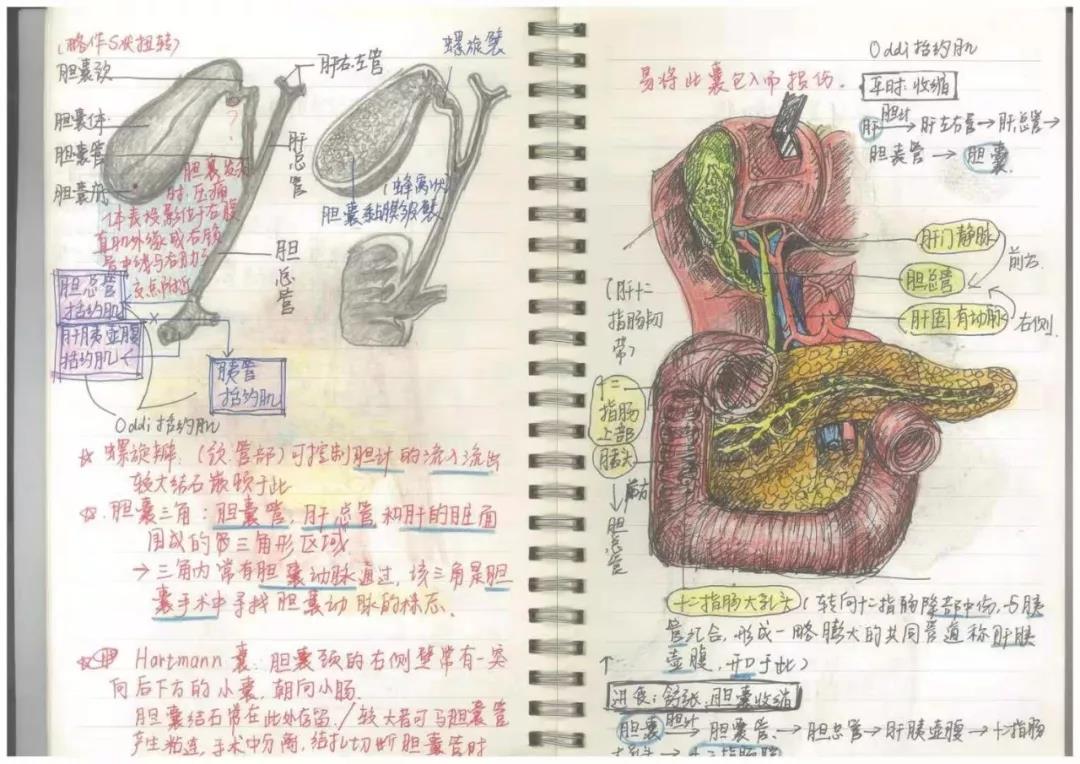 (略作S状扭转)
胆囊颈
胆囊体
胆囊管
胆囊底
肝右左管
螺旋襞
肝总管
胆囊发炎
时压痛
体表投影位于右腹
直肌外缘或右锁
骨中线与右肋弓
交点附近
(蜂窝状)
胆囊黏膜皱襞
胆总管
胆总管
括约肌
肝胰壶腹
括约肌
胰管
括约肌
Oddi括约肌
☆ 螺旋瓣.(颈.管部)可控制胆汁的流入流出
较大结石嵌顿于此
☆.胆囊三角:胆囊管,肝总管和肝的脏面
围成的三角形区域
→三角内常有胆囊动脉通过,该三角是胆
囊手术中寻找胆囊动脉的标志.
☆ Hartmann囊:胆囊颈的右侧壁常有一突
向后下方的小囊,朝向小肠.
胆囊结石常在此外存留./较大者可与胆囊管
产生粘连,手术中分离,结扎切断胆囊管时
易将此囊包入而损伤.
Oddi括约肌
平时:收缩
肝 胆汁→肝左右管→肝总管→
胆囊管→胆囊.
肝门静脉
前方.
胆总管
肝固有动脉
右侧
(肝十二指肠韧带)
十二指肠上部
胰头
前方
胆总管
十二指肠大乳头(转向十二指肠降部中份,与胰
管汇合,形成一略膨大的共同管道称肝胰
壶腹,开口于此)
进食:舒张.胆囊收缩
胆囊 胆汁→胆囊管.→胆总管→肝胰壶腹→十二指肠
大乳头→十二指肠腔